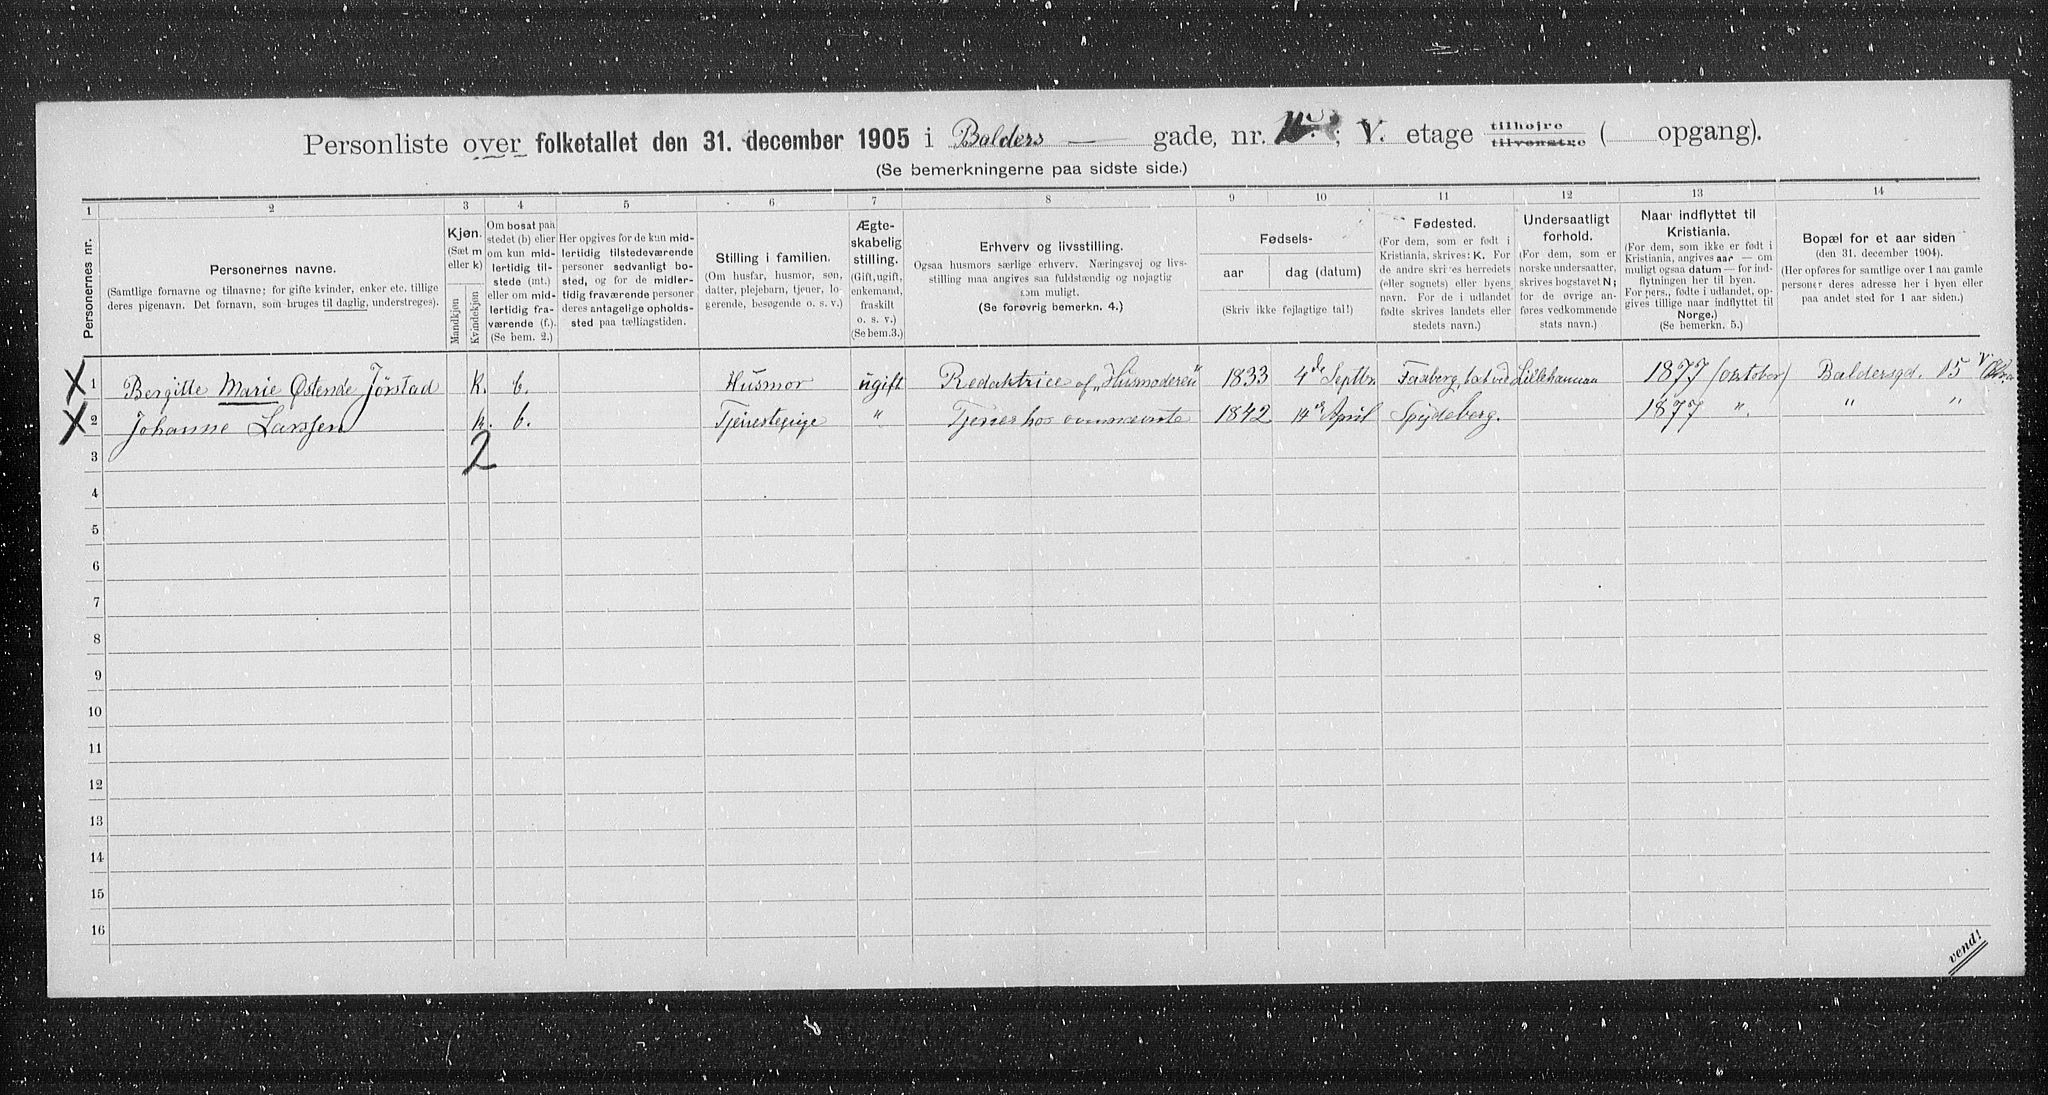 Personliste over folketallet den 31. december 1905 i Balders — gade, nr. ; V. etage tilhøjre tilvenstre ( opgang).
(Se bemerkningerne paa sidste side.)
1 2 3 4 5 6 7 8 9 10 11 12 13 14
Personernes nr.
Personernes navne.
(Samtlige fornavne og tilnavne; for gifte kvinder, enker etc. tillige
deres pigenavn. Det fornavn, som bruges til daglig, understreges).
Kjøn.
(Sæt m
eller k)
Mandkjøn
Kvindekjøn
Om bosat paa
stedet (b) eller
om kun mid-
lertidig til-
stede (mt.)
eller om mid-
lertidig fra-
værende (f.).
(Se bem. 2.)
Her opgives for de kun mid-
lertidig tilstedeværende
personer sedvanligt bo-
sted, og for de midler-
tidig fraværende personer
deres antagelige opholds-
sted paa tællingstiden.
Stilling i familien.
(Om husfar, husmor, søn,
datter, plejebarn, tjener, lo-
gerende, besøgende o. s. v.)
Ægte-
skabelig
stilling.
(Gift, ugift,
enkemand,
fraskilt
o. s. v.)
(Se bem. 3.)
Erhverv og livsstilling.
Ogsaa husmors særlige erhverv. Næringsvej og livs-
stilling maa angives saa fuldstændig og nøjagtig
som muligt.
(Se forøvrig bemerkn. 4.)
Fødsels-
aar dag (datum)
(Skriv ikke fejlagtige tal!)
Fødested.
(For dem, som er født i
Kristiania, skrives: K. For
de andre skrives herredets
(eller sognets) eller byens
navn. For de i udlandet
fødte skrives landets eller
stedets navn.)
Undersaatligt
forhold.
(For dem, som er
norske undersaatter,
skrives bogstavet N;
for de øvrige an-
føres vedkommende
stats navn.)
Naar indflyttet til
Kristiania.
(For dem, som ikke er født i
Kristiania, angives aar — om
muligt ogsaa datum — for ind-
flytningen her til byen.
For pers., fødte i udlandet, op-
gives tillige naar indflyttet til
Norge.)
(Se bemerkn. 5.)
Bopæl for et aar siden
(den 31. december 1904).
(Her opføres for samtlige over 1 aar gamle
personer deres adresse her i byen eller
paa andet sted for 1 aar siden.)
X 1 Bergitte Marie Østende Jørstad k. b. Husmor ugift Redaktrice af „Husmoderen" 1833 4de Septbr. Faaberg, tæt ved Lillehammer 1877 (oktober) Baldersgd. 15 V
X 2 Johanne Larssen k. b. Tjenestepige " Tjener hos ovennævnte 1842 14de April Spydeberg. 1877 ". " "
3 2
4
5
6
7
8
9
10
11
12
13
14
15
16
vend!